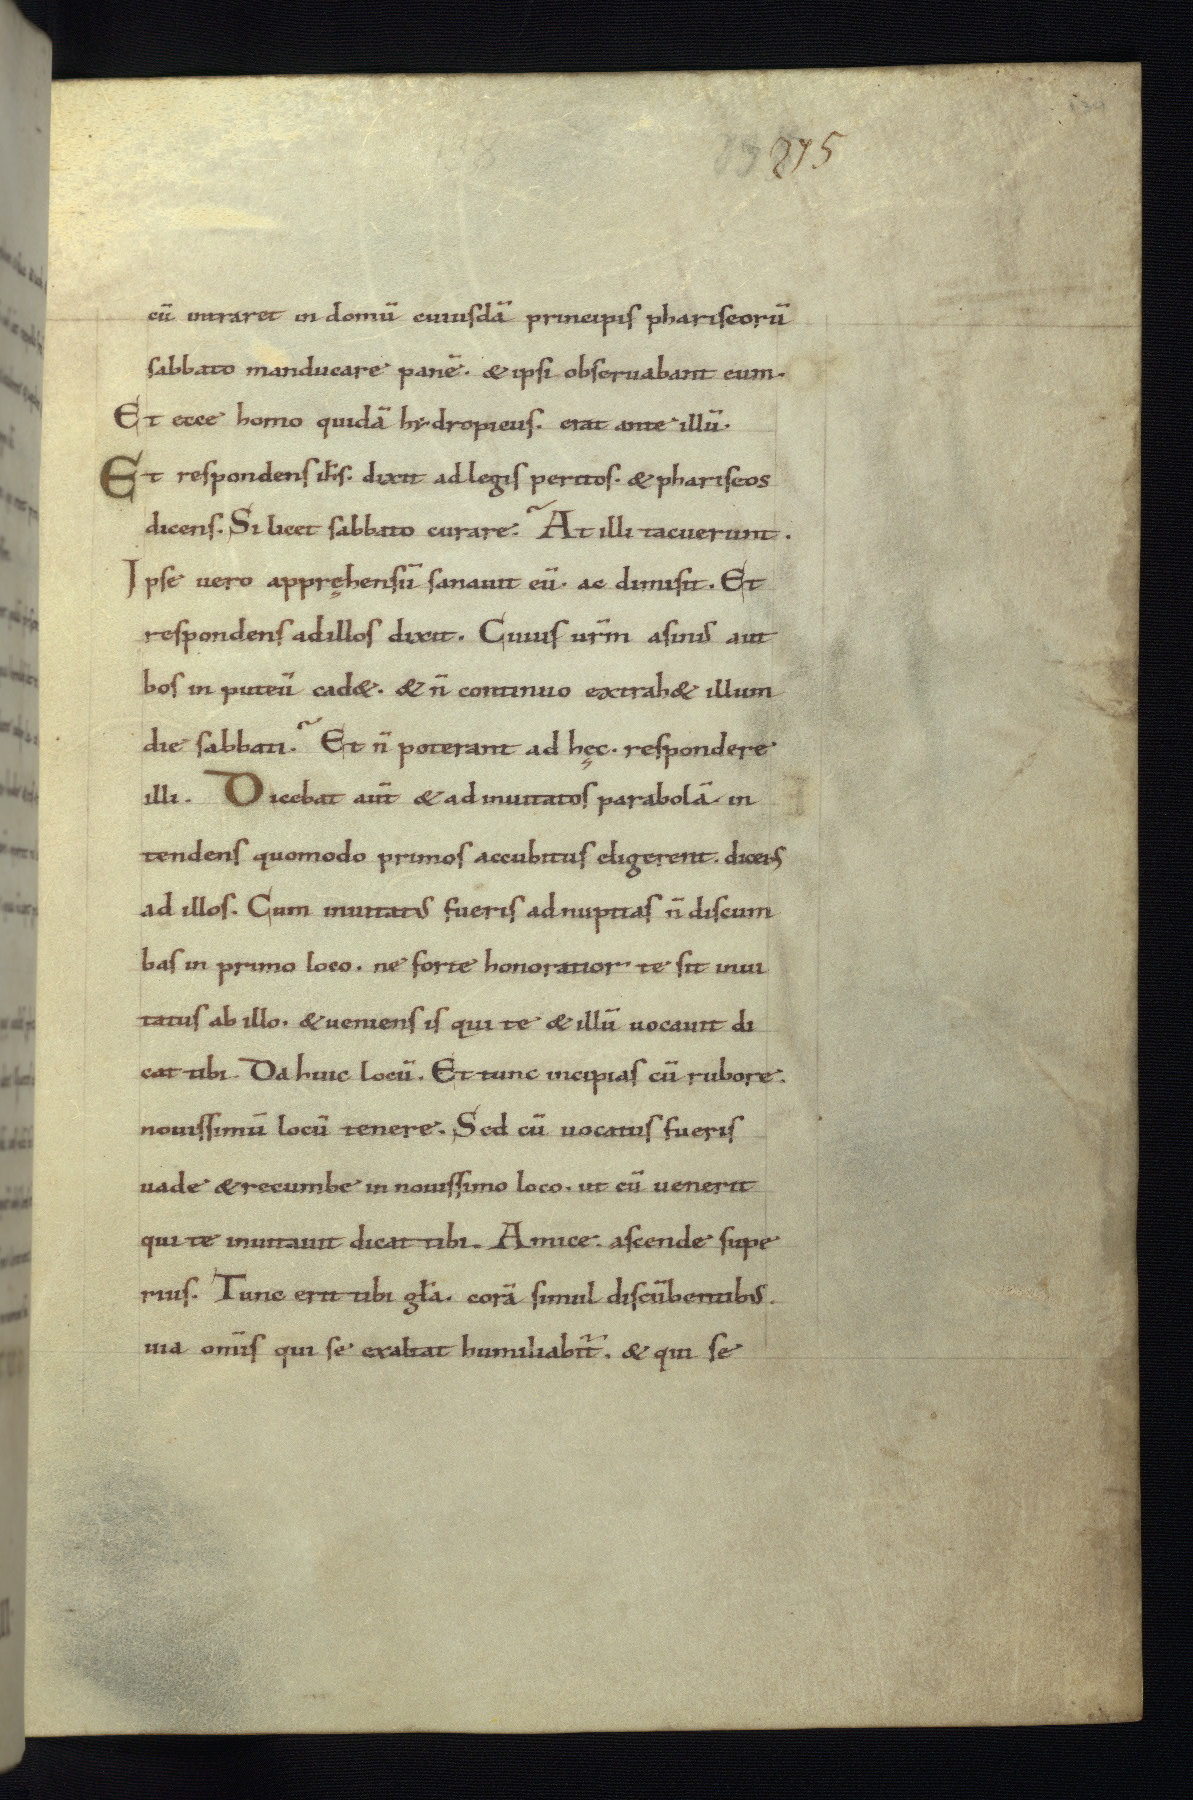 275
cū intraret in domū cuiusdā principis phariseorū
sabbato manducare panē. & ipsi obseruabant eum.
Et ecce homo quidā hydropicus. erat ante illū.
Et respondens ihs̄. dixit ad legis peritos. & phariseos
dicens. Si licet sabbato curare? At illi tacuerunt.
Ipse uero appręhensū sanauit eū. ac dimisit. Et
respondens ad illos dixit. Cuius urm̄ asinus aut
bos in puteū cad&. & n̄ continuo extrah& illum
die sabbati? Et n̄ poterant ad hęc. respondere
illi. Dicebat aut̄ & ad inuitatos parabolā. in
tendens quomodo primos accubitus eligerent. dicens
ad illos. Cum inuitatus fueris ad nuptias n̄ discum
bas in primo loco. ne forte honoratior te sit inui
tatus ab illo. & ueniens is qui te & illū uocauit di
cat tibi. Da huic locū. Et tunc incipias cū rubore.
nouissimū locū tenere. Sed cū uocatus fueris
uade & recumbe in nouissimo loco. ut cū uenerit
qui te inuitauit dicat tibi. Amice. ascende supe
rius. Tunc erit tibi gła. corā simul discūbentibus.
uia om̄is qui se exaltat humiliabit̄. & qui se